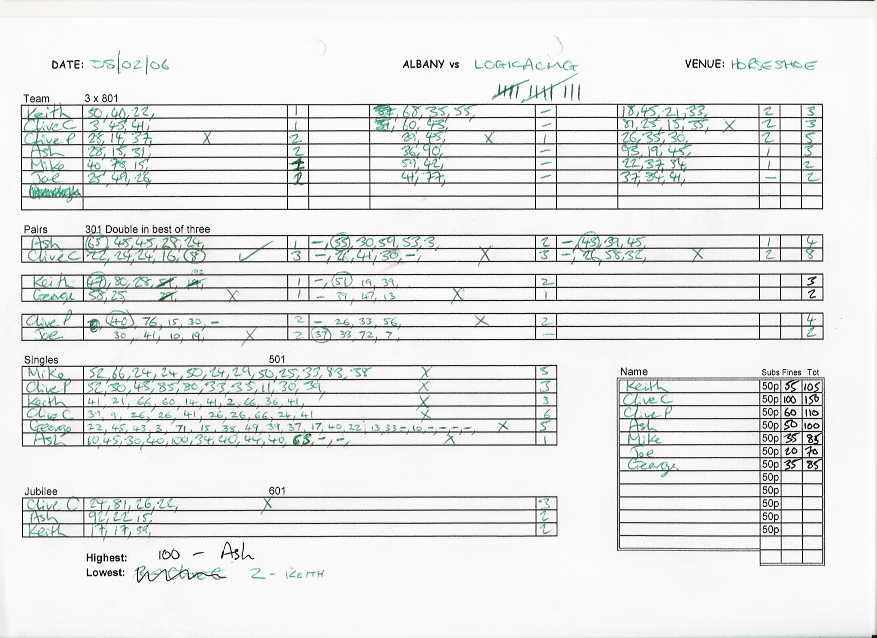 DATE: 08/02/06 ALBANY vs LOGICACMG VENUE: HORSESHOE
Team 3 x 801
Keith 50, 40, 22, 1 68, 35, 55 - 18, 45, 21, 33, 2 3
Clive C 3, 43, 41, 1 60, 45, - 81, 25, 15, 35, X 2 3
Clive P 28, 14, 37, X 2 39, 45, X 1 26, 35, 30, 2 5
Ash 28, 15, 31, 2 36, 90, - 93, 19, 45, 1 3
Mike 40, 78, 15, 1 59, 42, - 22, 37, 34, 1 2
Joe 25, 49, 26, 2 41, 77, - 37, 34, 41, - 2
Pairs 301 Double in best of three
Ash (65) 45, 45, 28, 24, 1 -, (55), 30, 59, 53, 3, 2 -, (43), 39, 45, 1 4
Clive C 22, 24, 24, 16, (8) ✓ 3 -, 26, 41, 30, -, X 3 -, 26, 58, 32, X 2 8
Keith (47), 80, 28, 1 -, (51) 19, 39, 2 3
George 58, 25 X 1 - 39, 47, 13 X 1 2
Clive P (40), 76, 15, 30, - 2 - 26, 33, 56, X 2 4
Joe 30, 41, 10, 19, X 2 (37) 33, 72, 7, - 2
Singles 501
Mike 52, 66, 24, 24, 50, 24, 29, 50, 25, 33, 83, 38 X 3
Clive P 52, 30, 43, 85, 80, 33, 35, 11, 30, 39, X 3
Keith 41, 21, 66, 60, 14, 41, 2, 66, 36, 41, X 3
Clive C 39, 9, 26, 26, 41, 26, 26, 66, 24, 41 X 6
George 22, 45, 43, 3, 71, 15, 38, 49, 39, 37, 17, 40, 22, 13, 33, -, 10, -, -, -, -, X 5
Ash 60, 45, 30, 40, 100, 34, 40, 44, 40, 63, -, -, X 1
Name Subs Fines Tot
Keith 50p 55 105
Clive C 50p 100 150
Clive P 50p 60 110
Ash 50p 50 100
Mike 50p 35 85
Joe 50p 20 70
George 50p 35 85
50p
50p
50p
50p
50p
Jubilee 601
Clive C 29, 81, 26, 22, X 3
Ash 92, 22, 15, 2
Keith 17, 17, 59, 2
Highest: 100 - Ash
Lowest: 2 - KEITH